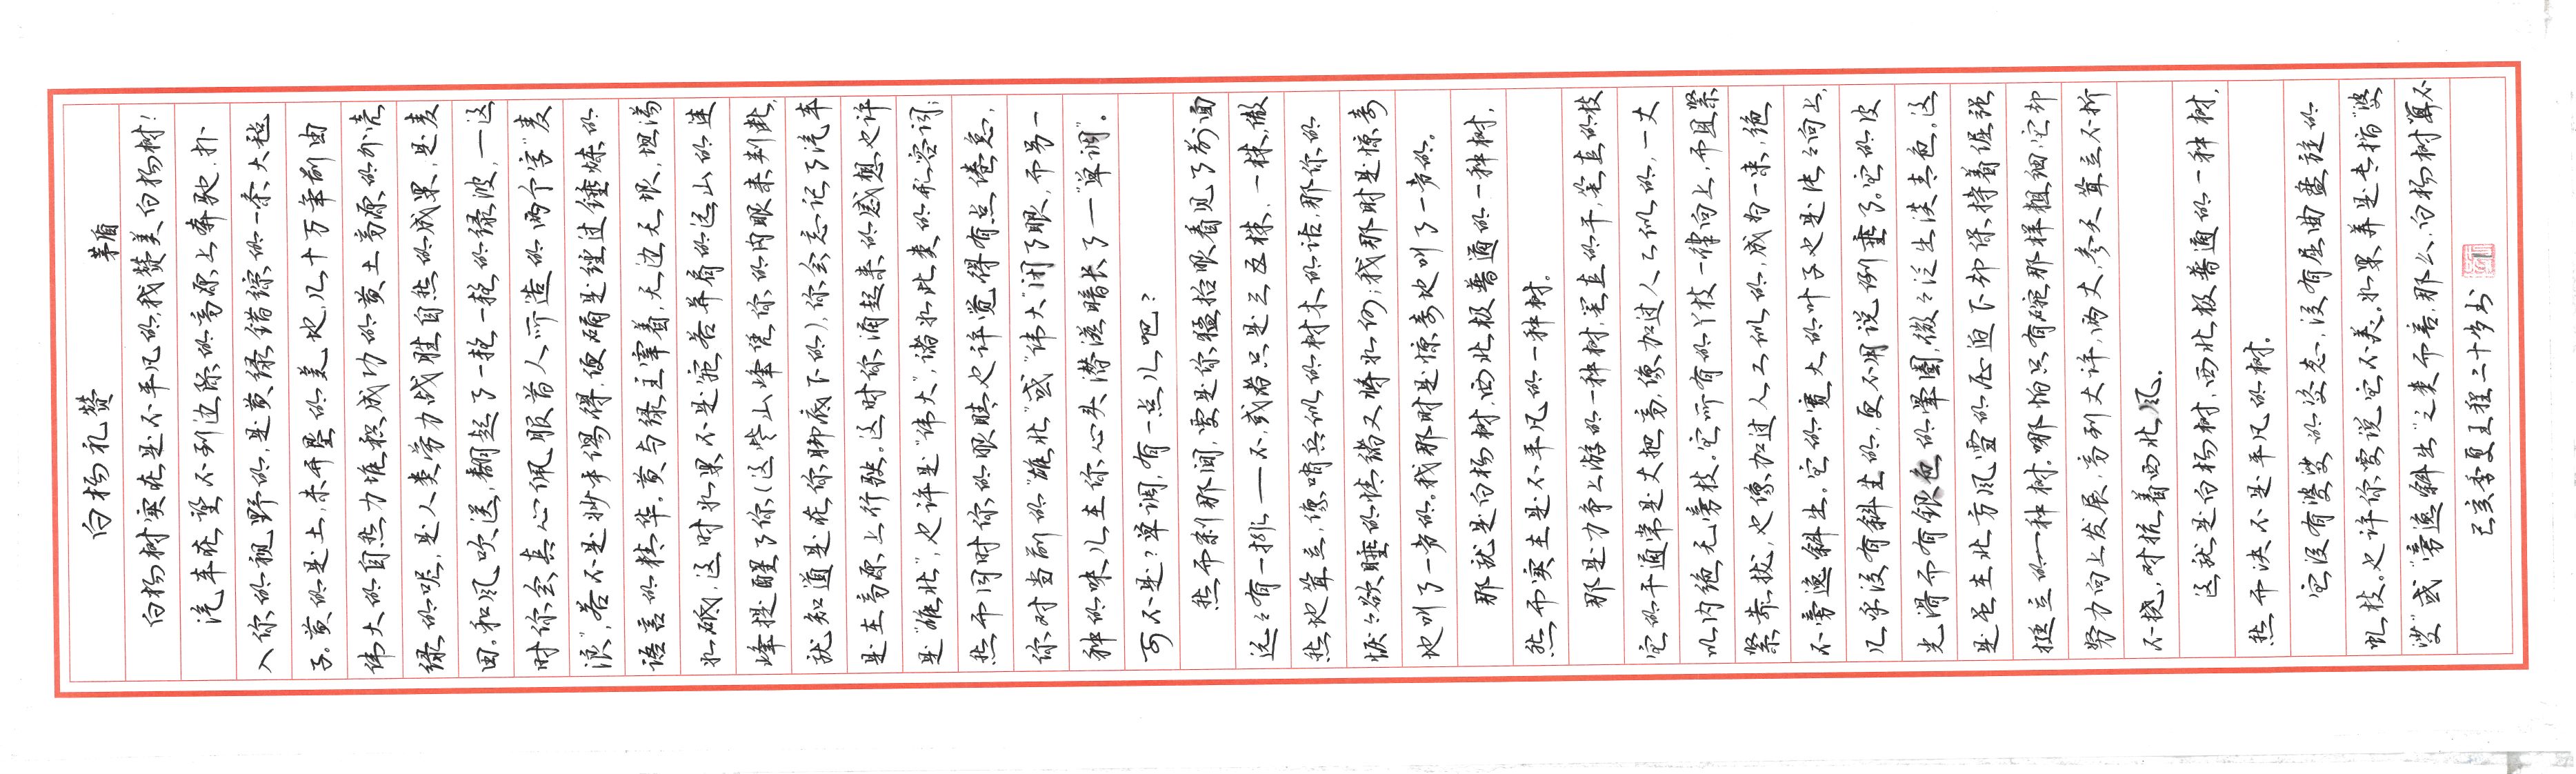 白杨礼赞
茅盾
白杨树实在是不平凡的,我赞美白杨树!
汽车在望不到边际的高原上奔驰,扑
入你的视野的,是黄绿错综的一条大毯
子。黄的是土,未开垦的荒地,几十万年前由
伟大的自然力堆积成功的黄土高原的外壳
绿的呢,是人类劳力战胜自然的成果,是麦
田。和风吹送,翻起了一轮一轮的绿波,一这
时你会真心佩服昔人所造的两个字“麦
浪”,若不是妙手偶得,便确是经过锤炼的
语言的精华。黄与绿主宰着,无边无垠,坦荡
如砥,这时如果不是宛若并肩的远山的连
峰提醒了你(这些山峰凭你的肉眼来判断,
就知道是在你脚底下的),你会忘记了汽车
是在高原上行驶。这时你涌起来的感想也许
是“雄壮”,也许是“伟大”,诸如此类的形容词;
然而同时你的眼睛也许觉得有点倦怠,
你对当前的“雄壮”或“伟大”闭了眼,而另一
种的味儿在你心头潜滋暗长了一“单调”。
可不是?单调,有一点儿吧?
然而刹那间,要是你猛抬眼看见了前面
远々有一排,一不,或者只是三五株,一株,傲
然地耸立,像哨兵似的树木的话,那你的
恹々欲睡的情绪又将如何,我那时是惊奇
地叫了一声的。我那时是惊奇地叫了一声的。
那就是白杨树,西北极普通的一种树,
然而实在是不平凡的一种树。
那是力争上游的一种树,笔直的干,笔直的枝
它的干通常是丈把高,像加过人工似的,一丈
以内绝无旁枝。它所有的丫枝一律向上,而且紧
紧靠拢,也像加过人工似的,成为一束,绝
不旁逸斜出。它的宽大的叶子也是片々向上,
几乎没有斜生的,更不用说倒垂了。它的皮
光滑而有银色的晕圈,微々泛出淡青色。这
是虽在北方风雪的压迫下却保持着倔强
挺立的一种树。哪怕只有碗那样粗细,它却
努力向上发展,高到丈许,两丈,参天耸立不折
不挠,对抗着西北风。
这就是白杨树,西北极普通的一种树,
然而决不是平凡的树。
它没有婆娑的姿态,没有屈曲盘旋的
虬枝。也许你要说它不美。如果美是专指“婆
娑”或“旁逸斜出”之类而言,那么,白杨树算不
己亥季夏王程二十步书